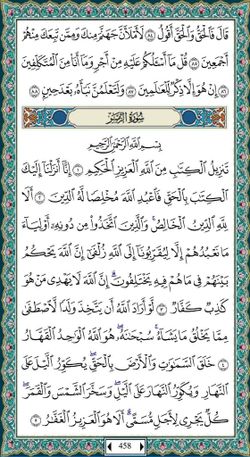 قَالَ فَالْحَقُّ وَالْحَقَّ أَقُولُ ٨٤ لَأَمْلَأَنَّ جَهَنَّمَ مِنكَ وَمِمَّن تَبِعَكَ مِنْهُمْ
أَجْمَعِينَ ٨٥ قُلْ مَا أَسْأَلُكُمْ عَلَيْهِ مِنْ أَجْرٍ وَمَا أَنَا مِنَ الْمُتَكَلِّفِينَ
٨٦ إِنْ هُوَ إِلَّا ذِكْرٌ لِّلْعَالَمِينَ ٨٧ وَلَتَعْلَمُنَّ نَبَأَهُ بَعْدَ حِينٍ ٨٨
سُورَةُ الزُّمَرِ
بِسْمِ اللَّهِ الرَّحْمَٰنِ الرَّحِيمِ
تَنزِيلُ الْكِتَابِ مِنَ اللَّهِ الْعَزِيزِ الْحَكِيمِ ١ إِنَّا أَنزَلْنَا إِلَيْكَ
الْكِتَابَ بِالْحَقِّ فَاعْبُدِ اللَّهَ مُخْلِصًا لَّهُ الدِّينَ ٢ أَلَا
لِلَّهِ الدِّينُ الْخَالِصُ وَالَّذِينَ اتَّخَذُوا مِن دُونِهِ أَوْلِيَاءَ
مَا نَعْبُدُهُمْ إِلَّا لِيُقَرِّبُونَا إِلَى اللَّهِ زُلْفَىٰ إِنَّ اللَّهَ يَحْكُمُ
بَيْنَهُمْ فِي مَا هُمْ فِيهِ يَخْتَلِفُونَ إِنَّ اللَّهَ لَا يَهْدِي مَنْ هُوَ
كَاذِبٌ كَفَّارٌ ٣ لَّوْ أَرَادَ اللَّهُ أَن يَتَّخِذَ وَلَدًا لَّاصْطَفَىٰ
مِمَّا يَخْلُقُ مَا يَشَاءُ سُبْحَانَهُ هُوَ اللَّهُ الْوَاحِدُ الْقَهَّارُ
٤ خَلَقَ السَّمَاوَاتِ وَالْأَرْضَ بِالْحَقِّ يُكَوِّرُ اللَّيْلَ عَلَى
النَّهَارِ وَيُكَوِّرُ النَّهَارَ عَلَى اللَّيْلِ وَسَخَّرَ الشَّمْسَ وَالْقَمَرَ
كُلٌّ يَجْرِي لِأَجَلٍ مُّسَمًّى أَلَا هُوَ الْعَزِيزُ الْغَفَّارُ ٥
458